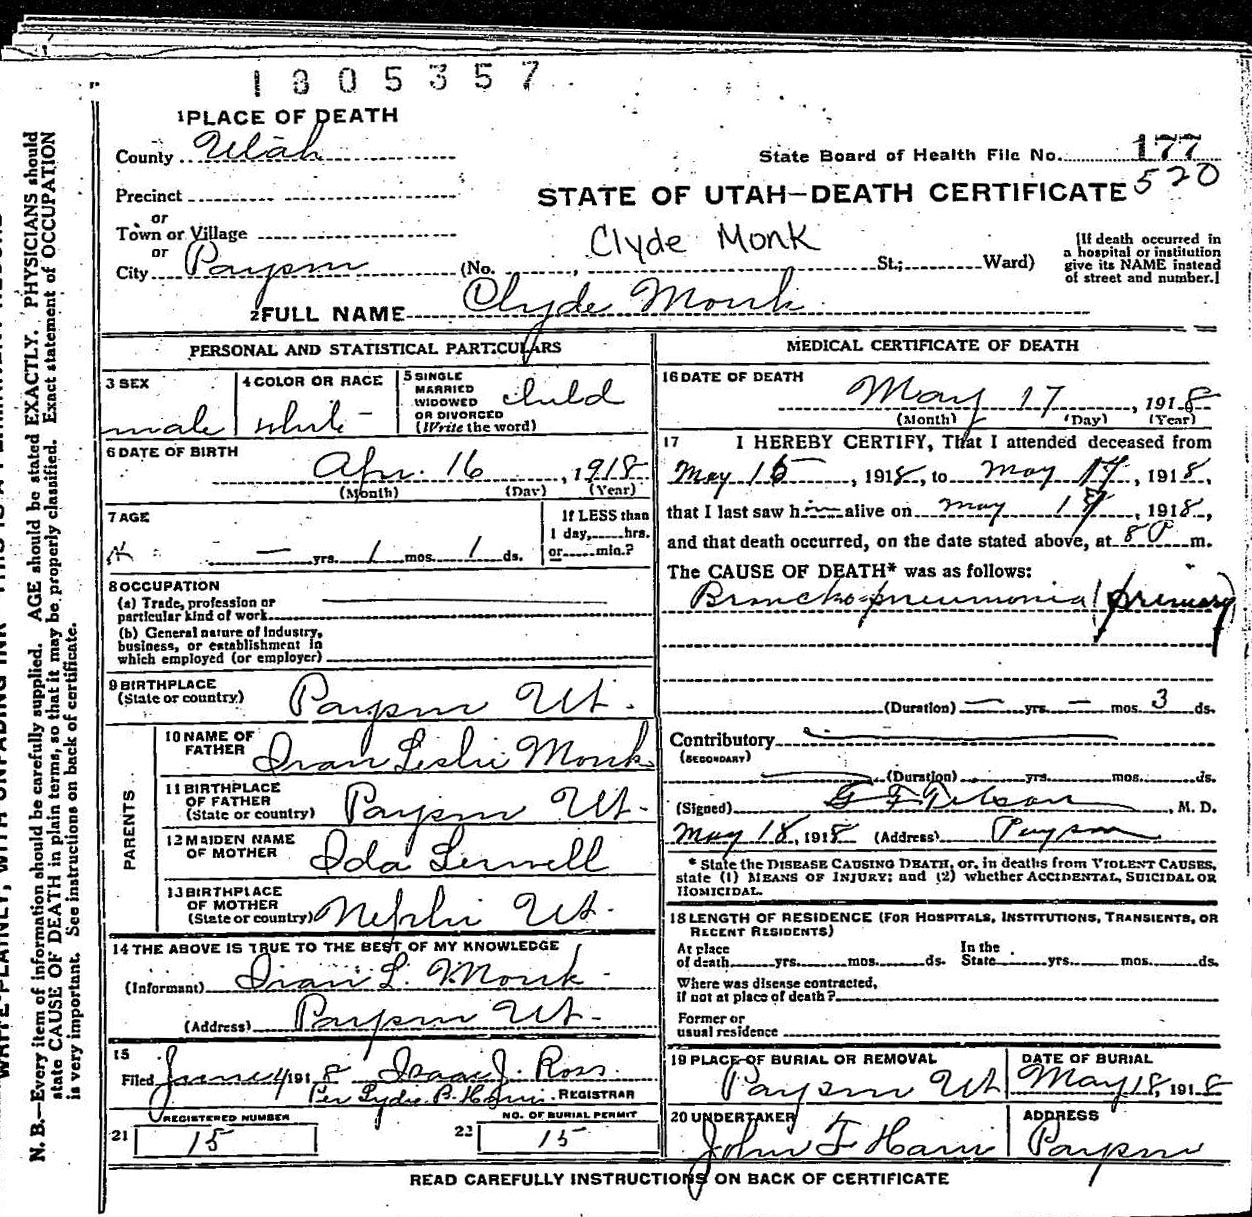 1805357
1 PLACE OF DEATH
County Utah
State Board of Health File No. 177
Precinct
STATE OF UTAH—DEATH CERTIFICATE 520
or
Town or Village
or
Clyde Monk
City Payson (No. , St.; Ward)
[If death occurred in
a hospital or institution
give its NAME instead
of street and number.]
2 FULL NAME Clyde Monk
PERSONAL AND STATISTICAL PARTICULARS
3 SEX
male
4 COLOR OR RACE
white
5 SINGLE
MARRIED
WIDOWED
OR DIVORCED
(Write the word)
child
6 DATE OF BIRTH
Apr. 16, 1918
(Month) (Day) (Year)
7 AGE
— yrs. 1 mos. 1 ds.
If LESS than
1 day, hrs.
or min.?
8 OCCUPATION
(a) Trade, profession or
particular kind of work
(b) General nature of Industry,
business, or establishment in
which employed (or employer)
9 BIRTHPLACE
(State or country)
Payson Ut.
PARENTS
10 NAME OF
FATHER
Ivan Leslie Monk
11 BIRTHPLACE
OF FATHER
(State or country)
Payson Ut.
12 MAIDEN NAME
OF MOTHER
Ida
13 BIRTHPLACE
OF MOTHER
(State or country)
Nephi Ut.
14 THE ABOVE IS TRUE TO THE BEST OF MY KNOWLEDGE
(Informant) Ivan L. Monk
(Address) Payson Ut.
15
Filed June 4 1918 Isaac J. Ross
Per Lydia B. REGISTRAR
REGISTERED NUMBER
21 15
NO. OF BURIAL PERMIT
22 15
MEDICAL CERTIFICATE OF DEATH
16 DATE OF DEATH
May 17, 1918
(Month) (Day) (Year)
17 I HEREBY CERTIFY, That I attended deceased from
May 15, 1918, to May 17, 1918,
that I last saw him alive on May 17, 1918,
and that death occurred, on the date stated above, at 8 P m.
The CAUSE OF DEATH* was as follows:
Broncho-pneumonia (primary)
(Duration) — yrs. — mos. 3 ds.
Contributory
(SECONDARY)
(Duration) yrs. mos. ds.
(Signed) G F Tilson, M. D.
May 18, 1918 (Address) Payson
* State the DISEASE CAUSING DEATH, or, in deaths from VIOLENT CAUSES,
state (1) MEANS OF INJURY; and (2) whether ACCIDENTAL, SUICIDAL OR
HOMICIDAL.
18 LENGTH OF RESIDENCE (FOR HOSPITALS, INSTITUTIONS, TRANSIENTS, OR
RECENT RESIDENTS)
At place
of death yrs. mos. ds.
In the
State yrs. mos. ds.
Where was disease contracted,
if not at place of death?
Former or
usual residence
19 PLACE OF BURIAL OR REMOVAL
Payson Ut
DATE OF BURIAL
May 18, 1918
20 UNDERTAKER
John F
ADDRESS
Payson
READ CAREFULLY INSTRUCTIONS ON BACK OF CERTIFICATE
N. B.—Every item of information should be carefully supplied. AGE should be stated EXACTLY. PHYSICIANS should
state CAUSE OF DEATH in plain terms, so that it may be properly classified. Exact statement of OCCUPATION
is very important. See instructions on back of certificate.